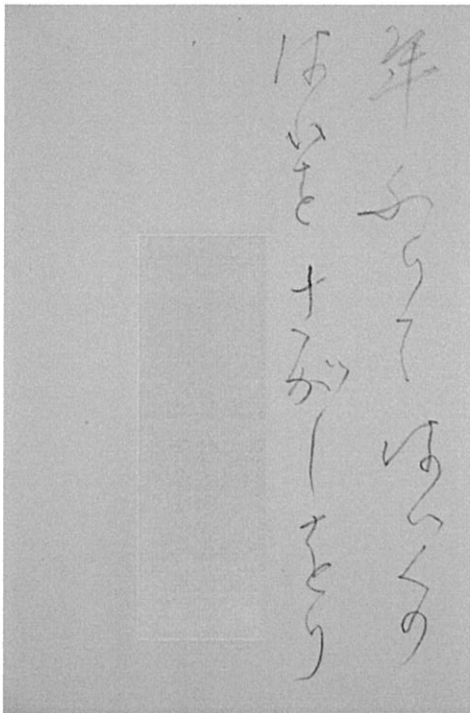 年ふりて はいくの
はいを さがしをり